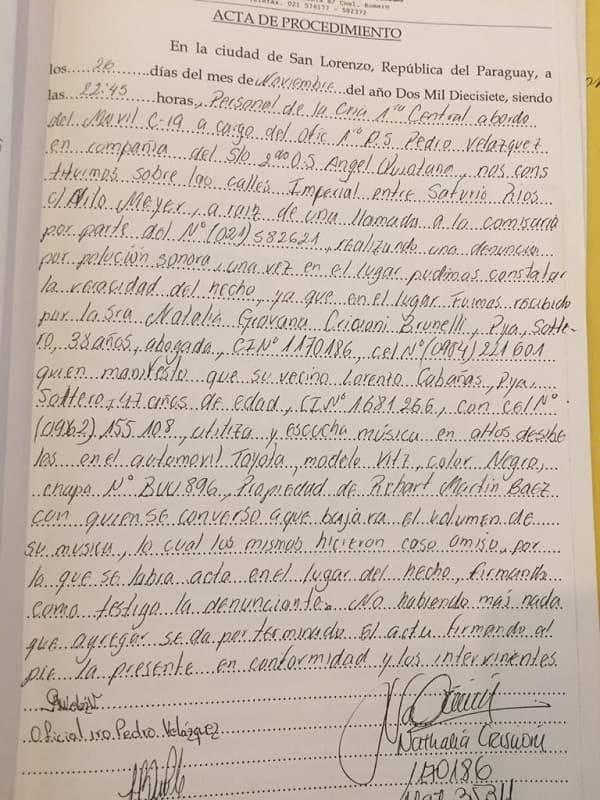 Telefax. 021 578177 - 582372
ACTA DE PROCEDIMIENTO
En la ciudad de San Lorenzo, República del Paraguay, a
los 26 días del mes de Noviembre del año Dos Mil Diecisiete, siendo
las 22:45 horas, Personal de la Cria 1ra Central abordo
del Movil C-19 a cargo del Ofic 1ro P.S. Pedro Velazquez
en compañia del S/o 2do O.S. Angel Quintana, nos cons
tituimos sobre las calles Imperial entre Saturio Rios
c/ Milo Meyer, a raiz de una llamada a la comisaria
por parte del N° (021) 582621, realizando una denuncia
por polución sonora, una vez en el lugar pudimos constatar
la veracidad del hecho, ya que en el lugar Fuimos recibido
por la Sra Natalia Giovana Criscioni Brunelli, Pya, Solte-
ro, 38 años, abogada, CI N° 1170186, cel N° (0984) 221 601
quien manifesto que su vecino Lorenzo Cabañas, Pya,
Soltero, 47 años de edad, CI N° 1681266, con cel N°
(0962) 155 108, utiliza y escucha música en altos desibe
les en el automovil Toyota, modelo Vitz, color Negro,
chapa N° BUU 896, Propiedad de Richart Martin Baez
con quien se converso a que bajara el volumen de
su musica, lo cual los mismos hicieron caso omiso, por
lo que se labra acta en el lugar del hecho, firmando
como testigo la denunciante. No habiendo más nada
que agregar se da por terminado el acto firmando al
pie la presente en conformidad y los intervinentes.
Oficial 1ro. Pedro Velázquez
Nathalia
1170186